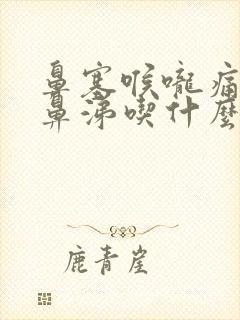 鼻塞喉嚨痛
鼻涕喫什麼
鹿青崖